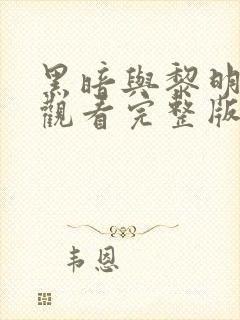 黑暗與黎明
觀看完整版
韦恩